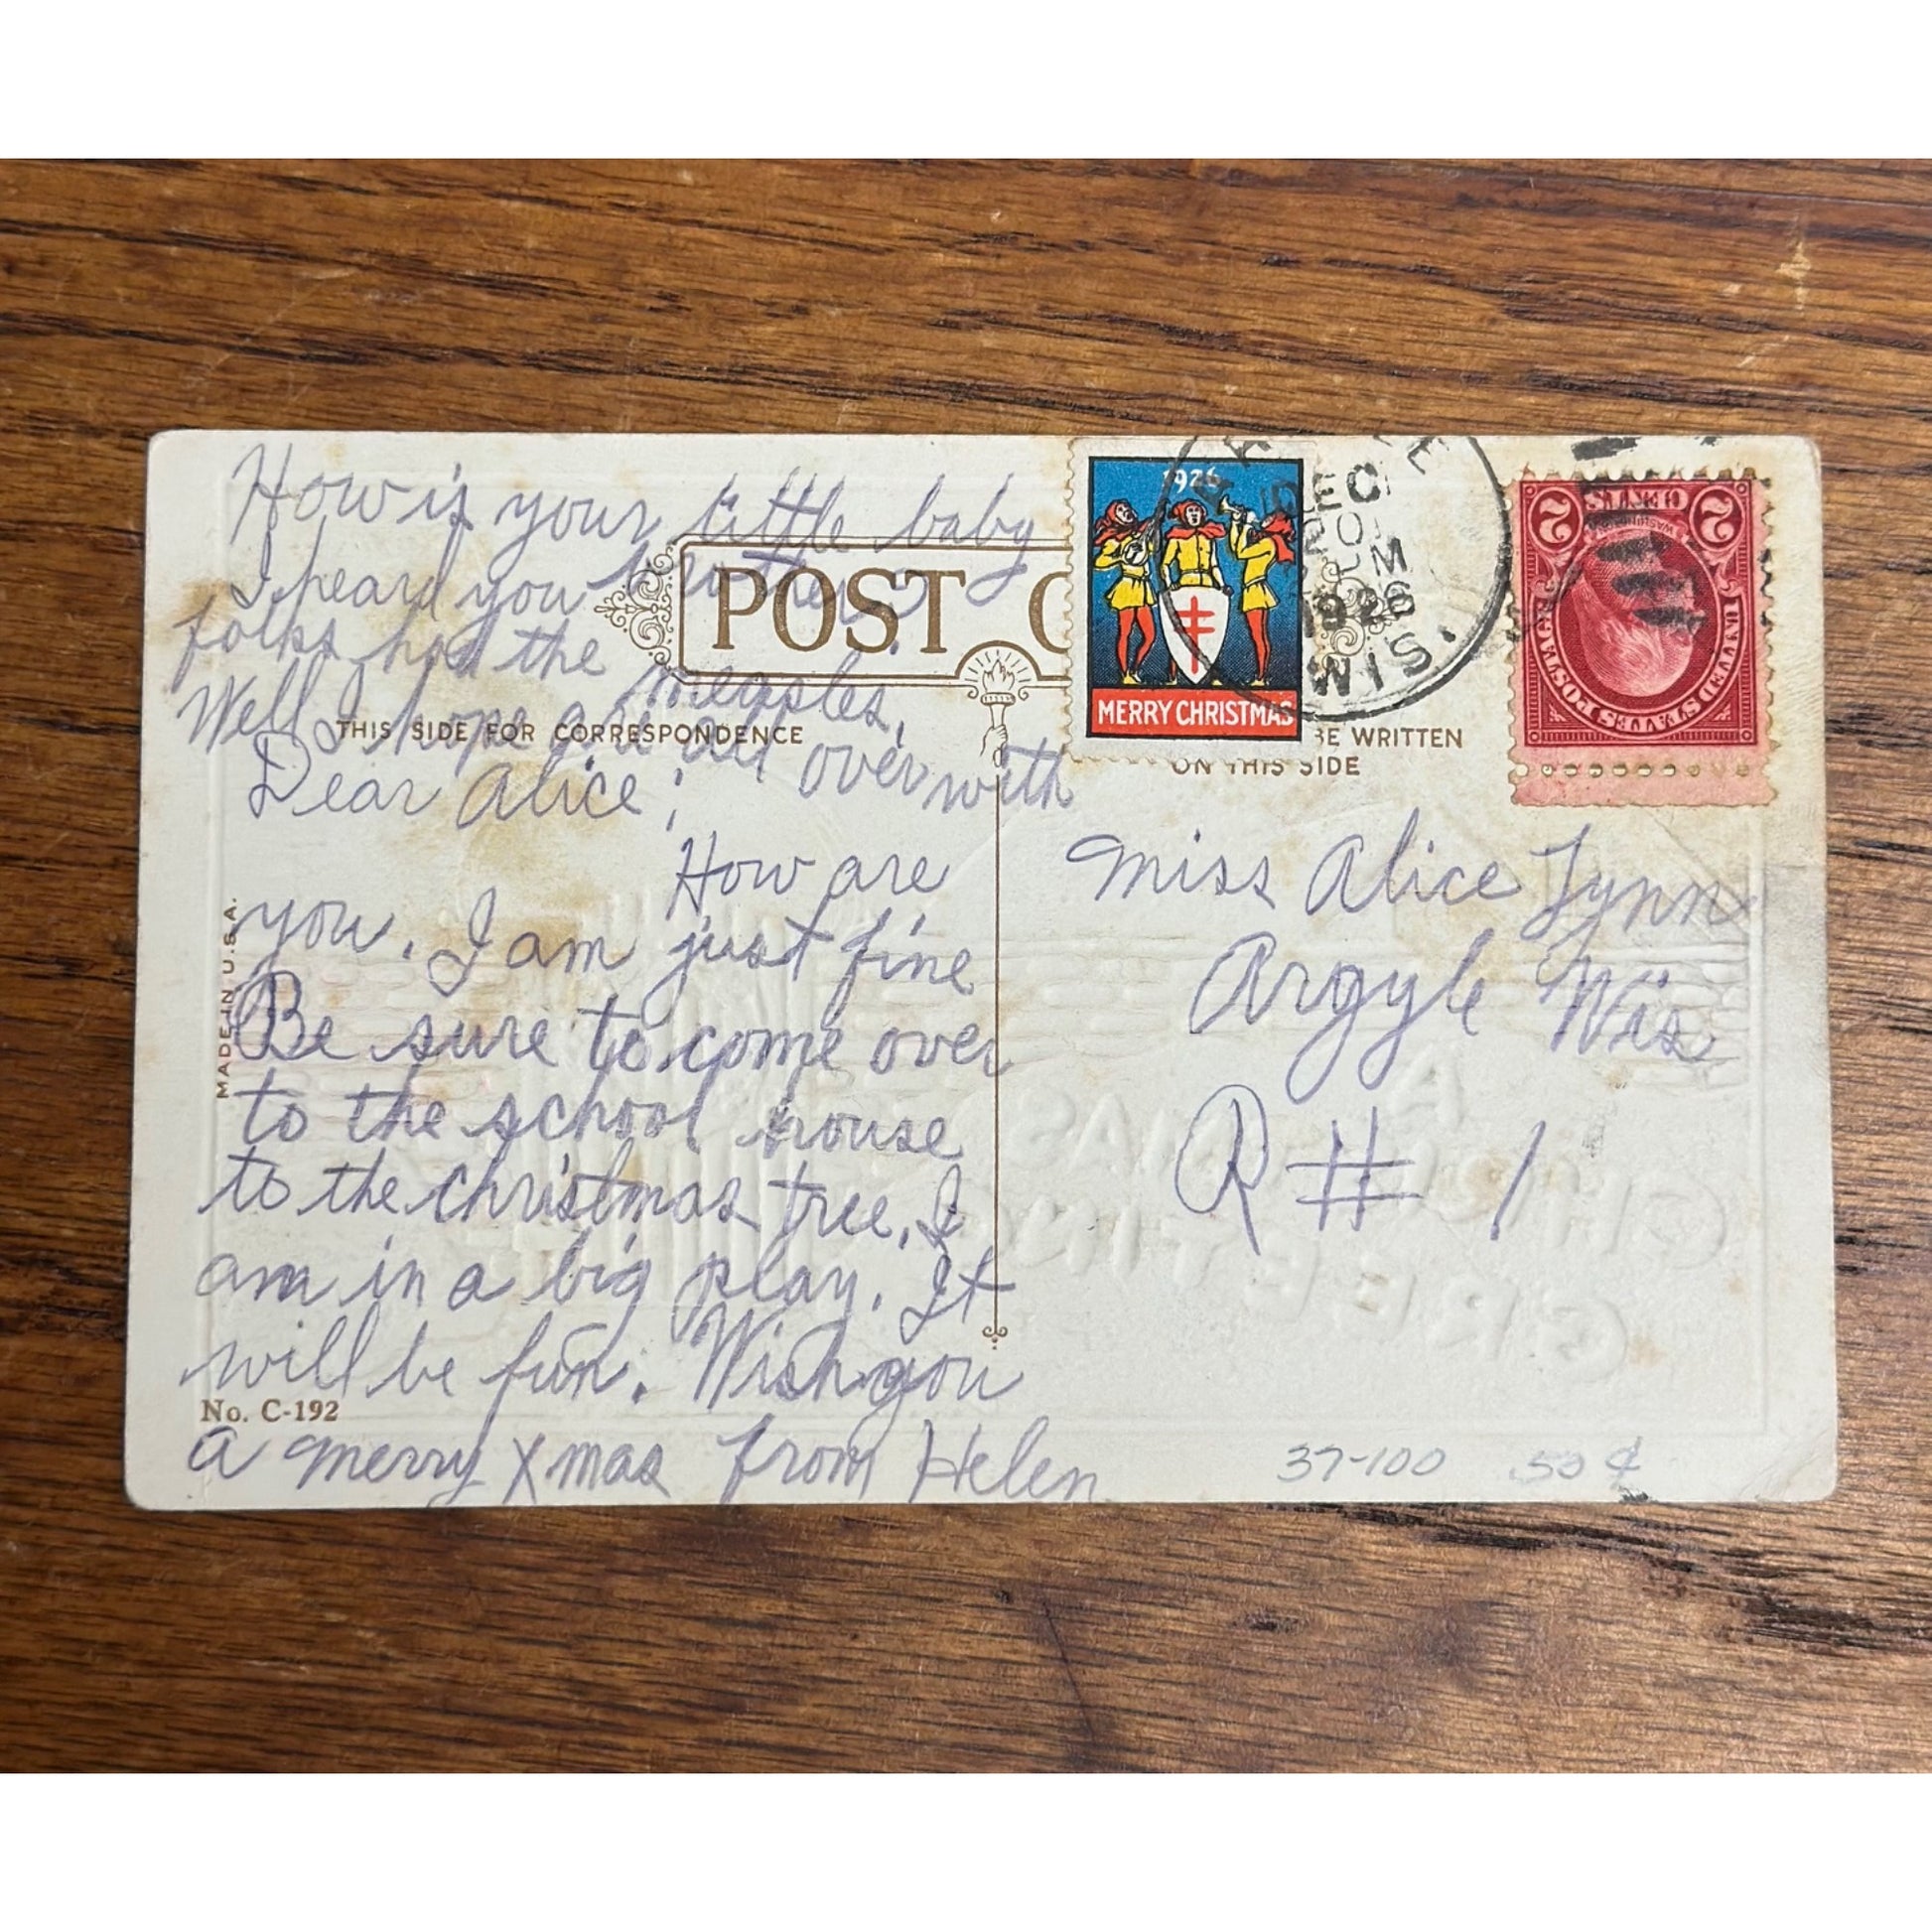 How is your little baby
brother
I heard you
folks had the measles.
Well I hope are all over with
POST C
THIS SIDE FOR CORRESPONDENCE
BE WRITTEN
ON THIS SIDE
1926
MERRY CHRISTMAS
DEC
20
PM
1926
WIS.
2 CENTS 2
WASHINGTON
UNITED STATES POSTAGE
Dear Alice;
How are
you. I am just fine
Be sure to come over
to the school house
to the christmas tree. I
am in a big play. It
will be fun. Wish you
a merry Xmas from Helen
MADE IN U.S.A.
No. C-192
Miss Alice Lynn
Argyle Wis
R # 1
37-100 .50¢
A
CHRISTMAS
GREETING